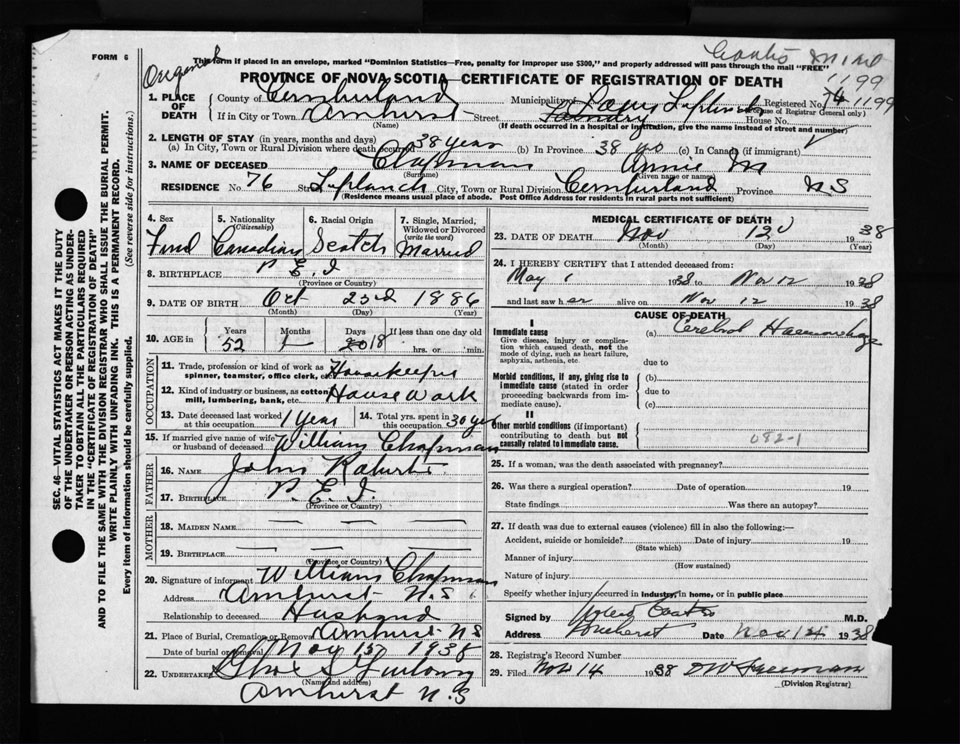 FORM 6
Original
Coates M
1199
This form if placed in an envelope, marked "Dominion Statistics—Free, penalty for improper use $300," and properly addressed will pass through the mail "FREE"
PROVINCE OF NOVA SCOTIA—CERTIFICATE OF REGISTRATION OF DEATH
1. PLACE OF DEATH
County of Cumberland Municipality of Registered No. 1199
(For use of Registrar General only)
If in City or Town Amherst Street Laplanch House No. 76
(Name) (If death occurred in a hospital or institution, give the name instead of street and number)
2. LENGTH OF STAY (in years, months and days)
(a) In City, Town or Rural Division where death occurred 38 years (b) In Province 38 yrs (c) In Canada (if immigrant)
3. NAME OF DECEASED Chapman Annie M
(Surname) (Given name or names)
RESIDENCE No. 76 Street Laplanch City, Town or Rural Division Cumberland Province N S
(Residence means usual place of abode. Post Office Address for residents in rural parts not sufficient)
4. Sex
5. Nationality (Citizenship)
6. Racial Origin
7. Single, Married, Widowed or Divorced (write the word)
Canadian Scotch Married
8. BIRTHPLACE P. E. I
(Province or Country)
9. DATE OF BIRTH Oct 23rd 1886
(Month) (Day) (Year)
10. AGE in Years 52 Months Days 18 If less than one day old hrs. or min.
OCCUPATION
11. Trade, profession or kind of work as spinner, teamster, office clerk, etc. Housekeeper
12. Kind of industry or business, as cotton mill, lumbering, bank, etc. House Work
13. Date deceased last worked at this occupation 1 Year
14. Total yrs. spent in this occupation 30 yrs
15. If married give name of wife or husband of deceased William Chapman
FATHER
16. NAME John
17. BIRTHPLACE P. E. I.
(Province or Country)
MOTHER
18. MAIDEN NAME — — —
19. BIRTHPLACE — — —
(Province or Country)
20. Signature of informant William Chapman
Address Amherst N.S.
Relationship to deceased Husband
21. Place of Burial, Cremation or Removal Amherst N S
Date of burial or removal Nov 15 1938
22. UNDERTAKER
(Name and address)
Amherst N.S
MEDICAL CERTIFICATE OF DEATH
23. DATE OF DEATH Nov 12 1938
(Month) (Day) (Year)
24. I HEREBY CERTIFY that I attended deceased from:
May 1 1938 to Nov 12 1938
and last saw her alive on Nov 12 1938
CAUSE OF DEATH
I
Immediate cause (a) Cerebral Haemorrhage
Give disease, injury or complication which caused death, not the mode of dying, such as heart failure, asphyxia, asthenia, etc.
due to
Morbid conditions, if any, giving rise to immediate cause (stated in order proceeding backwards from immediate cause).
(b)
due to
(c)
II
Other morbid conditions (if important) contributing to death but not causally related to immediate cause.
082-1
25. If a woman, was the death associated with pregnancy?
26. Was there a surgical operation? Date of operation 19
State findings Was there an autopsy?
27. If death was due to external causes (violence) fill in also the following:—
Accident, suicide or homicide? Date of injury 19
(State which)
Manner of injury
(How sustained)
Nature of injury
Specify whether injury occurred in Industry, in home, or in public place
Signed by Coates M.D.
Address Amherst Date Nov 14 1938
28. Registrar's Record Number
29. Filed Nov 14 1938
(Division Registrar)
SEC. 46—VITAL STATISTICS ACT MAKES IT THE DUTY
OF THE UNDERTAKER OR PERSON ACTING AS UNDER-
TAKER TO OBTAIN ALL THE PARTICULARS REQUIRED
IN THE "CERTIFICATE OF REGISTRATION OF DEATH"
AND TO FILE THE SAME WITH THE DIVISION REGISTRAR WHO SHALL ISSUE THE BURIAL PERMIT.
WRITE PLAINLY WITH UNFADING INK. THIS IS A PERMANENT RECORD.
Every item of information should be carefully supplied. (See reverse side for instructions.)